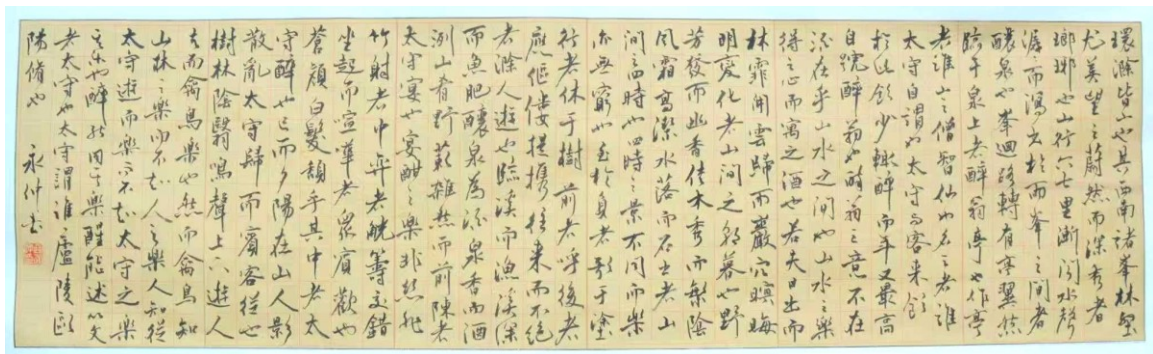 環滁皆山也其西南諸峯林壑
尤美望之蔚然而深秀者
瑯琊也山行六七里漸聞水聲
潺而瀉出於兩峯之間者
釀泉也峯迴路轉有亭翼然
臨于泉上者醉翁亭也作亭
者誰山之僧智仙也名之者誰
太守自謂也太守与客来飲
於此飲少輒醉而年又最高
自號醉翁也醉翁之意不在
酒在乎山水之間也山水之樂
得之心而寓之酒也若夫日出而
林霏開雲歸而巖穴暝晦
明變化者山間之朝暮也野
芳發而幽香佳木秀而繁陰
風霜高潔水落而石出者山
間之四時也四時之景不同而樂
亦無窮也至於負者歌于塗
行者休于樹前者呼後者
應傴僂提攜往来而不絕
者滁人遊也臨溪而漁溪深
而魚肥釀泉為酒泉香而酒
洌山肴野蔌雜然而前陳者
太守宴也宴酣之樂非絲非
竹射者中弈者觥籌交錯
坐起而喧嘩者眾賓歡也
蒼顏白髮頹乎其中者太
守醉也已而夕陽在山人影
散亂太守歸而賓客從也
樹林陰翳鳴聲上下遊人
去而禽鳥樂也然而禽鳥知
山林之樂而不知人之樂人知從
太守遊而樂而不知太守之樂
其樂也醉能同其樂醒能述以文
者太守也太守謂誰廬陵歐
陽脩也 永 書